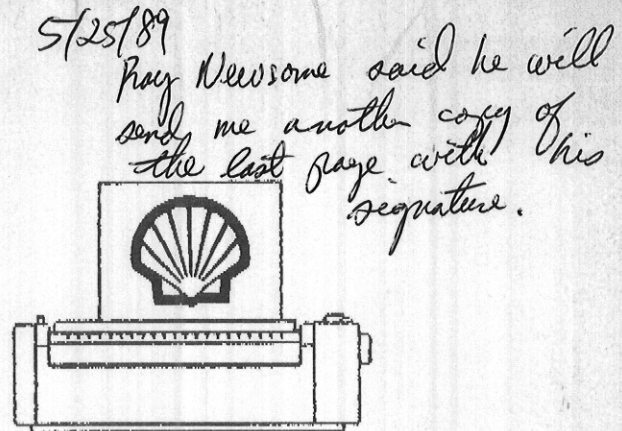 5/25/89
Ray Newsome said he will
send me another copy of
the last page with his
signature.